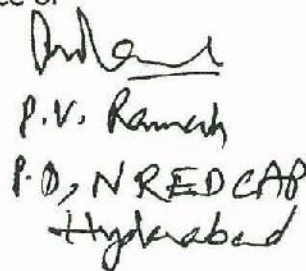 P.V. Ramesh
P.D, NREDCAP
Hyderabad